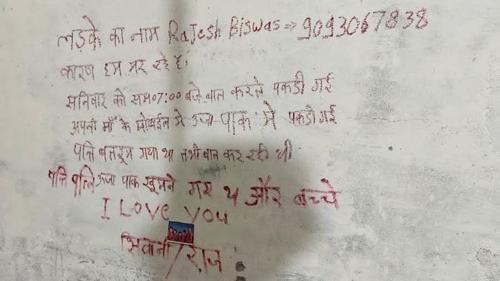 लड़के का नाम Rajesh Biswas → 9093067838
कारण हम मर रहे है।
सनिवार को सम 07:00 बजे बात करते पकडी गई
अपनी माँ के मोबाईल में ऊर्जा पाक में पकडी गई
पति बातरूम गया था तभी बात कर रही थी
पति पत्नि ऊर्जा पाक घुमने गए थे और बच्चे
I Love you
शिवानी / राज